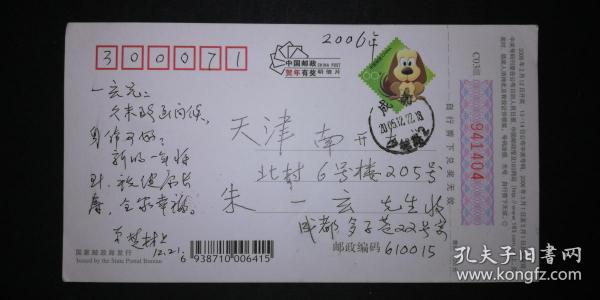 300071
2006年
中国邮政
CHINA POST
贺年有奖
明信片
60分
成都
2005.12.22.18
C03组
941404
自行剪下兑奖无效
一玄兄:
久未致函问候,
身体可好?
新的一年将
到,祝健康长
寿,全家幸福。
弟 楚 上
12.21.
天津 南开大学
北村6号楼205号
朱一玄 先生收
成都
邮政编码 610015
国家邮政局发行
Issued by the State Postal Bureau
6 938710 006415
孔夫子旧书网
www.kongfz.com